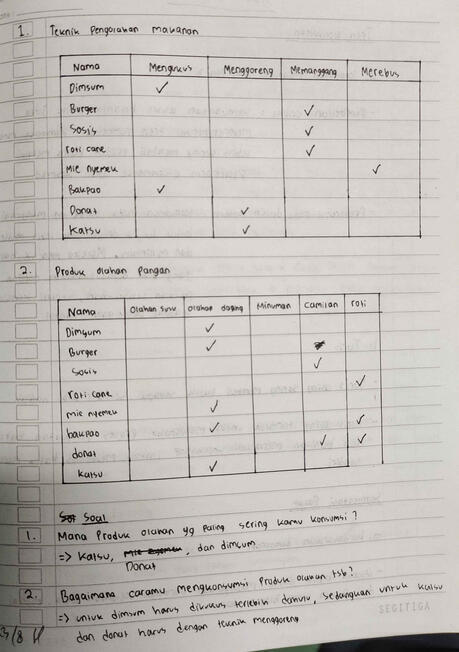 1. Teknik Pengolahan makanan
Nama Mengukus Menggoreng Memanggang Merebus
Dimsum ✓
Burger ✓
Sosis ✓
roti cane ✓
Mie nyemek ✓
Bakpao ✓
Donat ✓
Katsu ✓
2. Produk olahan Pangan
Nama Olahan susu Olahan daging Minuman Camilan roti
Dimsum ✓
Burger ✓
Sosis ✓
roti cane ✓
mie nyemek ✓
bakpao ✓ ✓
donat ✓ ✓
Katsu ✓
Soal
1. Mana Produk olahan yg Paling sering kamu konsumsi ?
=> Katsu, Mie nyemek, dan dimsum
Donat
2. Bagaimana caramu mengkonsumsi Produk olahan tsb?
=> untuk dimsum harus dikukus terlebih dahulu, sedangkan untuk katsu
dan donat harus dengan teknik menggoreng
SEGITIGA